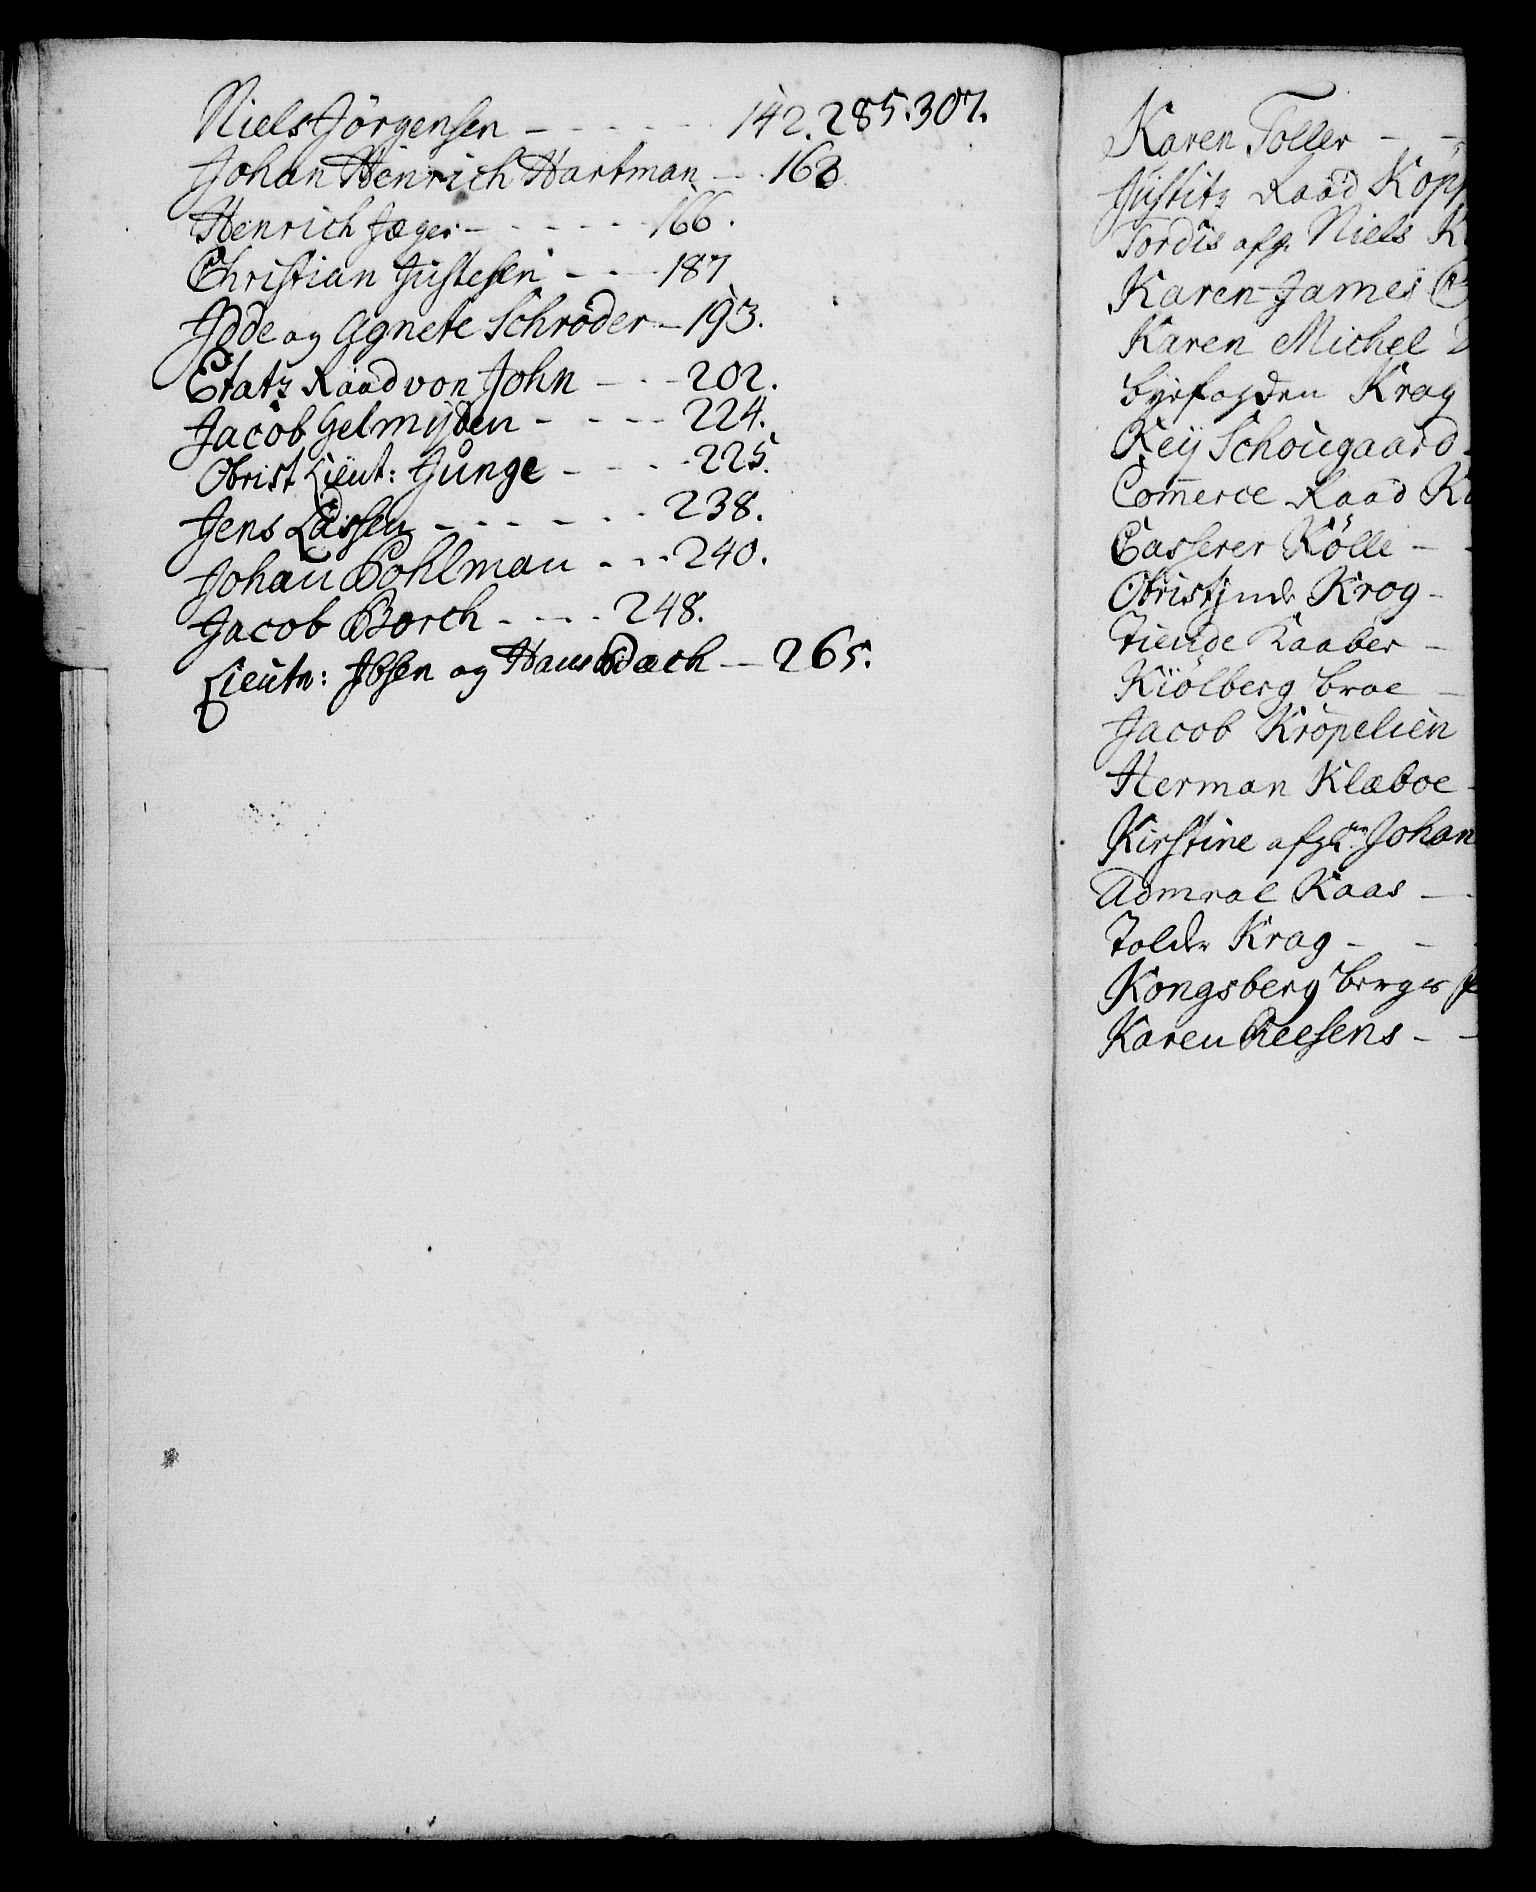 Niels Jörgensen - - - - - 142. 285. 307.
Johan Henrich Hartman - . 163
Henrich Jæger - - - - - - 166.
Christian Justesen - - - 187
Idde og Agnete Schröder - 193.
Etatz Raad von John - - - 202.
Jacob Gelmÿden - - - - 224.
Obrist Lieut: Junge - - - - 225.
Jens Lassen - - - - - - 238.
Johan Pohlman - - - 240.
Jacob Borch - - - - 248.
Lieutn: Ibsen og Hans Bach - 265.
Karen Toller - -
Justitz Raad Kopp
Tordis afg. Niels K
Karen James
Karen Michel
Byefogden Krag
Keÿ Schougaard -
Com̄erce Raad K
Casserer Kölle - -
Obristinde Krog -
Tiende Kaaber -
Kiölberg broe -
Jacob Kröpelien
Herman Klæboe -
Kirstine afg: Johan
Admral Kaas - -
Tolder Krag - - -
Kongsberg
Karen Neesens - -